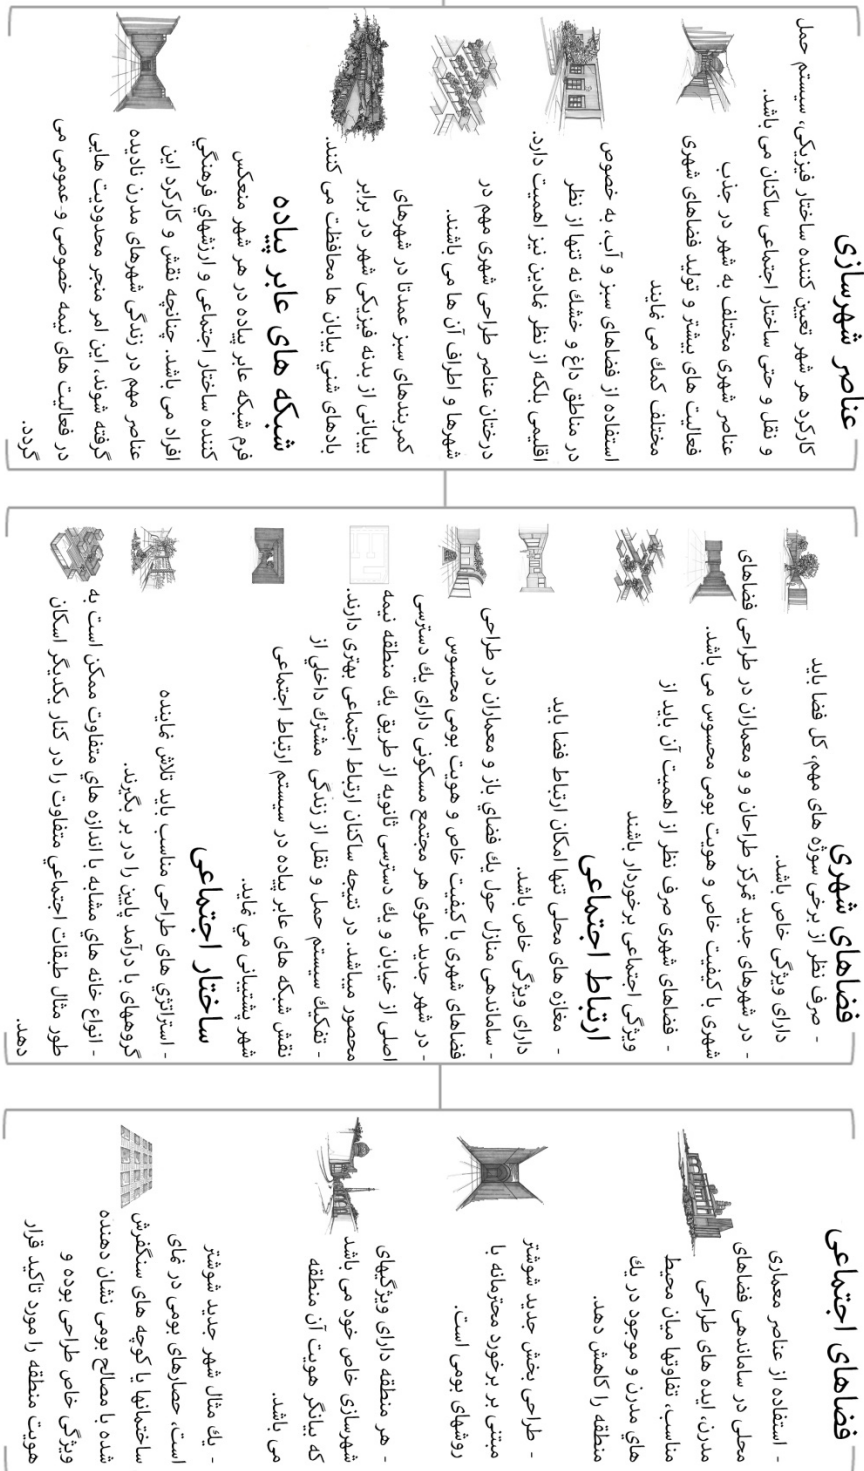 عناصر شهرسازی
کارکرد هر شهر تعیین کننده ساختار فیزیکی، سیستم حمل
و نقل و حتی ساختار اجتماعی ساکنان می باشد.
عناصر شهری مختلف به شهر در جذب
فعالیت های بیشتر و تولید فضاهای شهری
مختلف کمك می نمایند
استفاده از فضاهای سبز و آب، به خصوص
در مناطق داغ و خشك نه تنها از نظر
اقلیمی بلکه از نظر نمادین نیز اهمیت دارد.
درختان عناصر طراحی شهری مهم در
شهرها و اطراف آن ها می باشند.
کمربندهای سبز عمدتا در شهرهای
بیابانی از بدنه فیزیکی شهر در برابر
بادهای شنی بیابان ها محافظت می کنند.
شبکه های عابر پیاده
فرم شبکه عابر پیاده در هر شهر منعکس
کننده ساختار اجتماعی و ارزشهای فرهنگي
افراد می باشد. چنانچه نقش و کارکرد این
عناصر مهم در زندگی شهرهای مدرن نادیده
گرفته شوند، این امر منجر محدودیت هایی
در فعالیت های نیمه خصوصی و عمومی می
گردد.
فضاهای شهری
- صرف نظر از برخی سوژه های مهم، کل فضا باید
دارای ویژگی خاص باشد.
- در شهرهای جدید تمرکز طراحان و و معماران در طراحی فضاهای
شهری با کیفیت خاص و هویت بومی محسوس می باشد.
- فضاهای شهری صرف نظر از اهمیت آن باید از
ویژگی اجتماعی برخوردار باشند
ارتباط اجتماعی
- مغازه های محلی تنها امکان ارتباط فضا باید
دارای ویژگی خاص باشد.
- ساماندهی منازل حول یك فضاي باز و معماران در طراحی
فضاهای شهری با کیفیت خاص و هویت بومی محسوس
- در شهر جدید علوی هر مجتمع مسکونی دارای یك دسترسی
اصلی از خیابان و یك دسترسی ثانویه از طریق یك منطقه نیمه
محصور میباشد. در نتیجه ساکنان ارتباط اجتماعی بهتری دارند.
- تفکیك سیستم حمل و نقل از زندگی مشترك داخلي از
نقش شبکه های عابر پیاده در سیستم ارتباط اجتماعی
شهر پشتیبانی می نماید.
ساختار اجتماعی
- استراتژي های طراحی مناسب باید تلاش نماینده
گروههای با درآمد پایین را در بر بگیرند.
- انواع خانه هاي مشابه با اندازه هاي متفاوت ممکن است به
طور مثال طبقات اجتماعي متفاوت را در کنار یکدیگر اسکان
دهد.
فضاهای اجتماعی
- استفاده از عناصر معماری
محلی در ساماندهی فضاهای
مدرن، ایده های طراحی
مناسب، تفاوتها میان محیط
هاي مدرن و موجود در یك
منطقه را کاهش دهد.
- طراحی بخش جدید شوشتر
مبتنی بر برخورد محترمانه با
روشهای بومی است.
- هر منطقه دارای ویژگیهای
شهرسازی خاص خود می باشد
که بیانگر هویت آن منطقه
می باشد.
- یك مثال شهر جدید شوشتر
است، حصارهای بومی در نمای
ساختمانها یا کوچه های سنگفرش
شده با مصالح بومی نشان دهنده
ویژگی خاص طراحی بوده و
هویت منطقه را مورد تاکید قرار